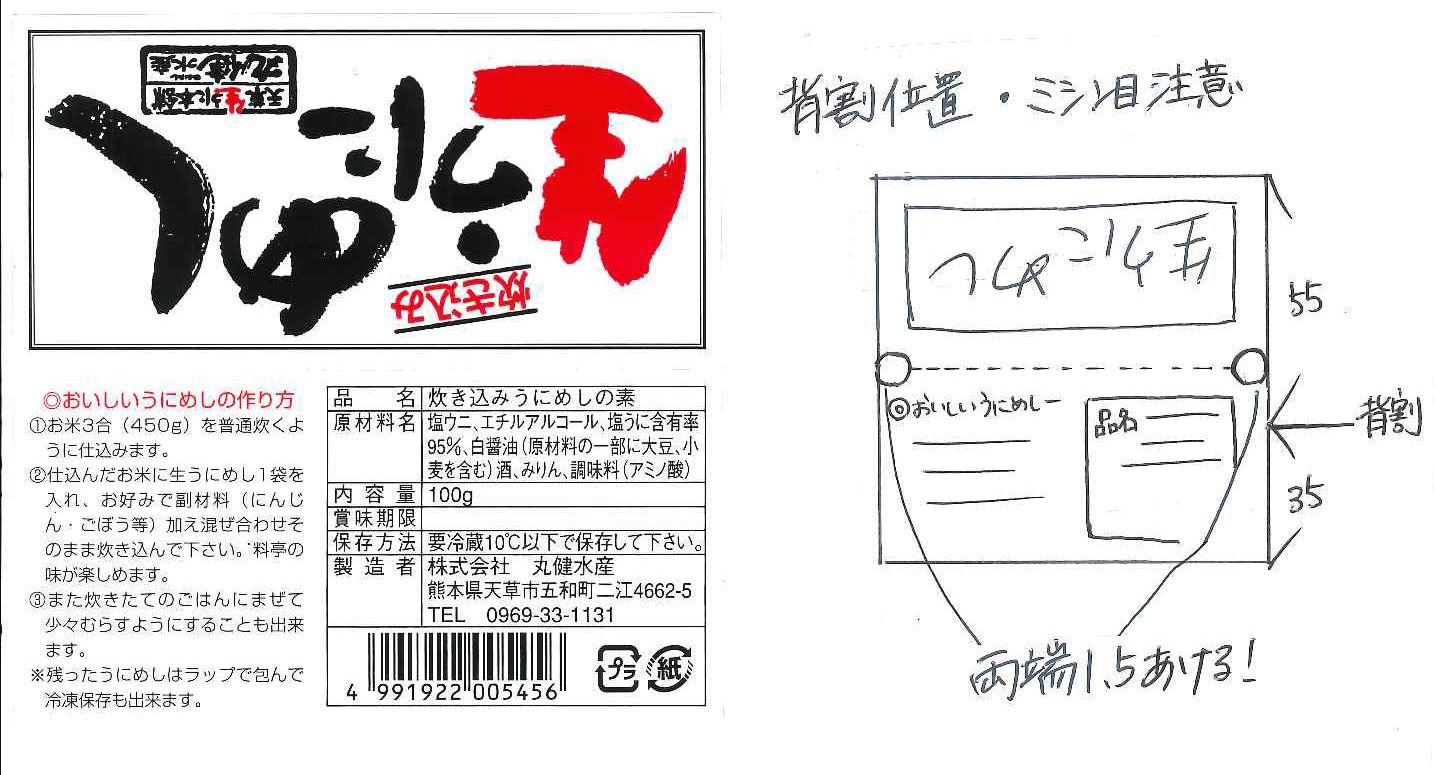 炊き込み
生うにめし
天草生うに本舗
丸健水産
◎おいしいうにめしの作り方
①お米3合（450g）を普通炊くよ
うに仕込みます。
②仕込んだお米に生うにめし1袋を
入れ、お好みで副材料（にんじ
ん・ごぼう等）加え混ぜ合わせそ
のまま炊き込んで下さい。料亭の
味が楽しめます。
③また炊きたてのごはんにまぜて
少々むらすようにすることも出来
ます。
※残ったうにめしはラップで包んで
冷凍保存も出来ます。
品名 炊き込みうにめしの素
原材料名 塩ウニ、エチルアルコール、塩うに含有率
95％、白醤油（原材料の一部に大豆、小
麦を含む）酒、みりん、調味料（アミノ酸）
内容量 100g
賞味期限
保存方法 要冷蔵10℃以下で保存して下さい。
製造者 株式会社　丸健水産
熊本県天草市五和町二江4662-5
TEL　0969-33-1131
4 991922 005456
プラ
紙
背割位置・ミシン目注意
生うにめし
55
◎おいしいうにめしー
品名
背割
35
両端1.5あける！